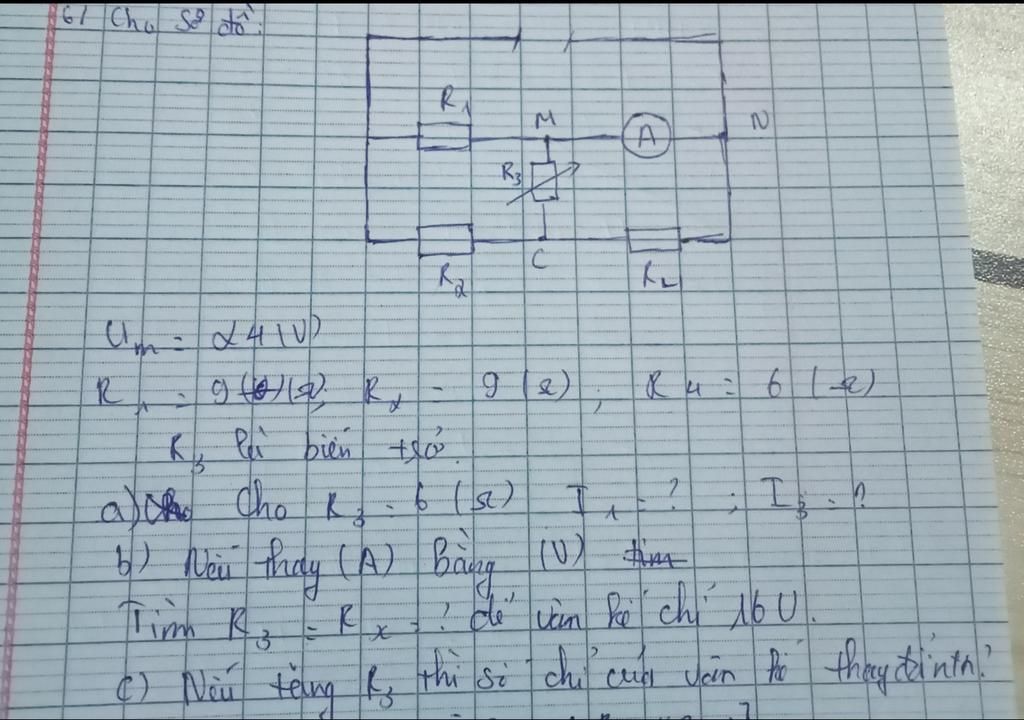 6/ Cho sơ đồ:
R1
M
A
N
R3
R2
C
R4
Um = 24 (V)
R1 = 9 (Ω); R2 = 9 (Ω); R4 = 6 (Ω)
R3 là biến trở.
a) Cho R3 = 6 (Ω) I1 = ? ; I3 = ?
b) Nếu thay (A) Bằng (V) tìm
Tìm R3 = Rx = ? để vôn kế chỉ 16 V.
c) Nếu tăng R3 thì số chỉ của vôn kế thay đổi ntn?